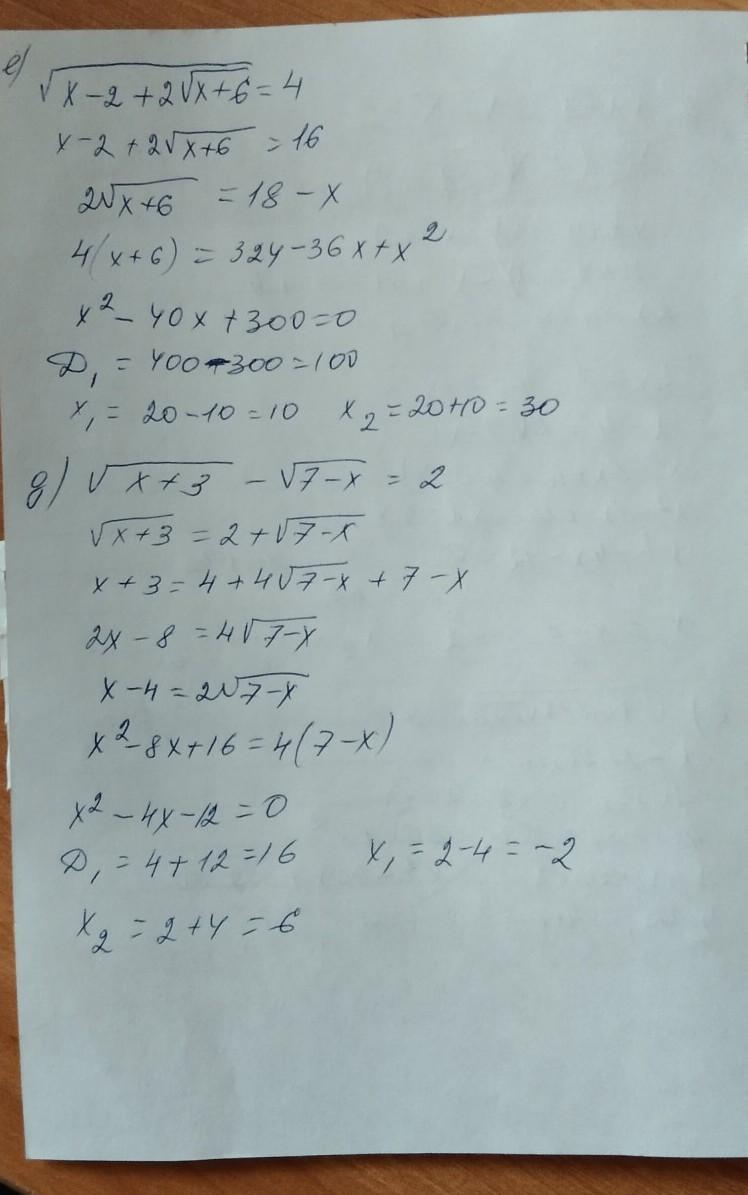 е) √(x-2+2√(x+6)) = 4
x-2+2√(x+6) = 16
2√(x+6) = 18-x
4(x+6) = 324-36x+x²
x²-40x+300=0
D₁ = 400-300=100
x₁ = 20-10=10 x₂=20+10=30
д) √(x+3) - √(7-x) = 2
√(x+3) = 2+√(7-x)
x+3=4+4√(7-x)+7-x
2x-8=4√(7-x)
x-4=2√(7-x)
x²-8x+16=4(7-x)
x²-4x-12=0
D₁=4+12=16 x₁=2-4=-2
x₂=2+4=6